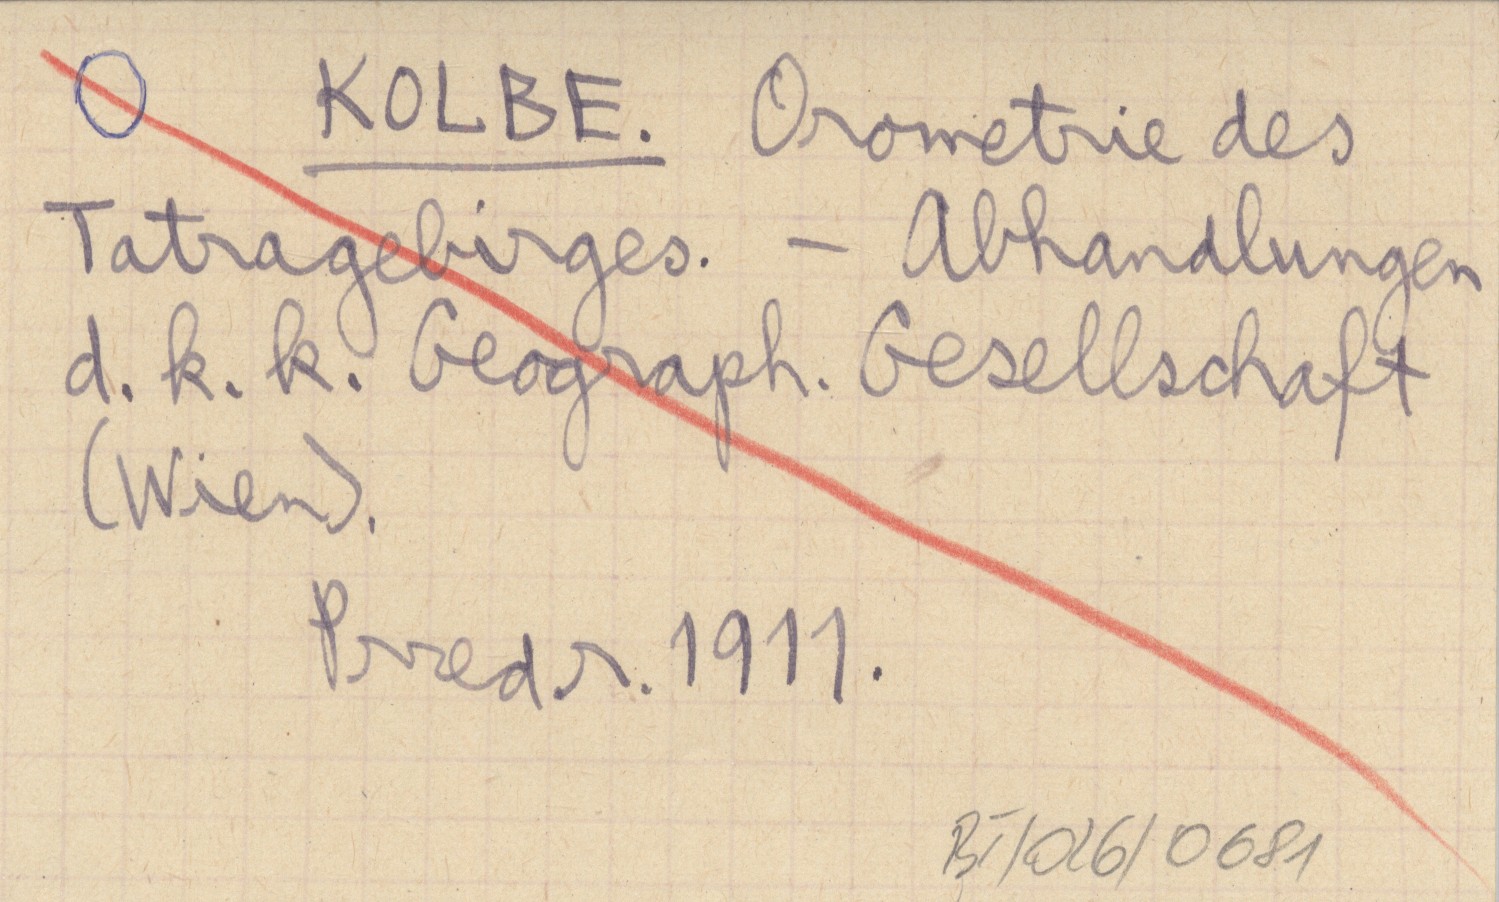 O KOLBE. Orometrie des
Tatragebirges. – Abhandlungen
d. k. k. Geograph. Gesellschaft
(Wien).
Przed r. 1911.
BT/026/0681